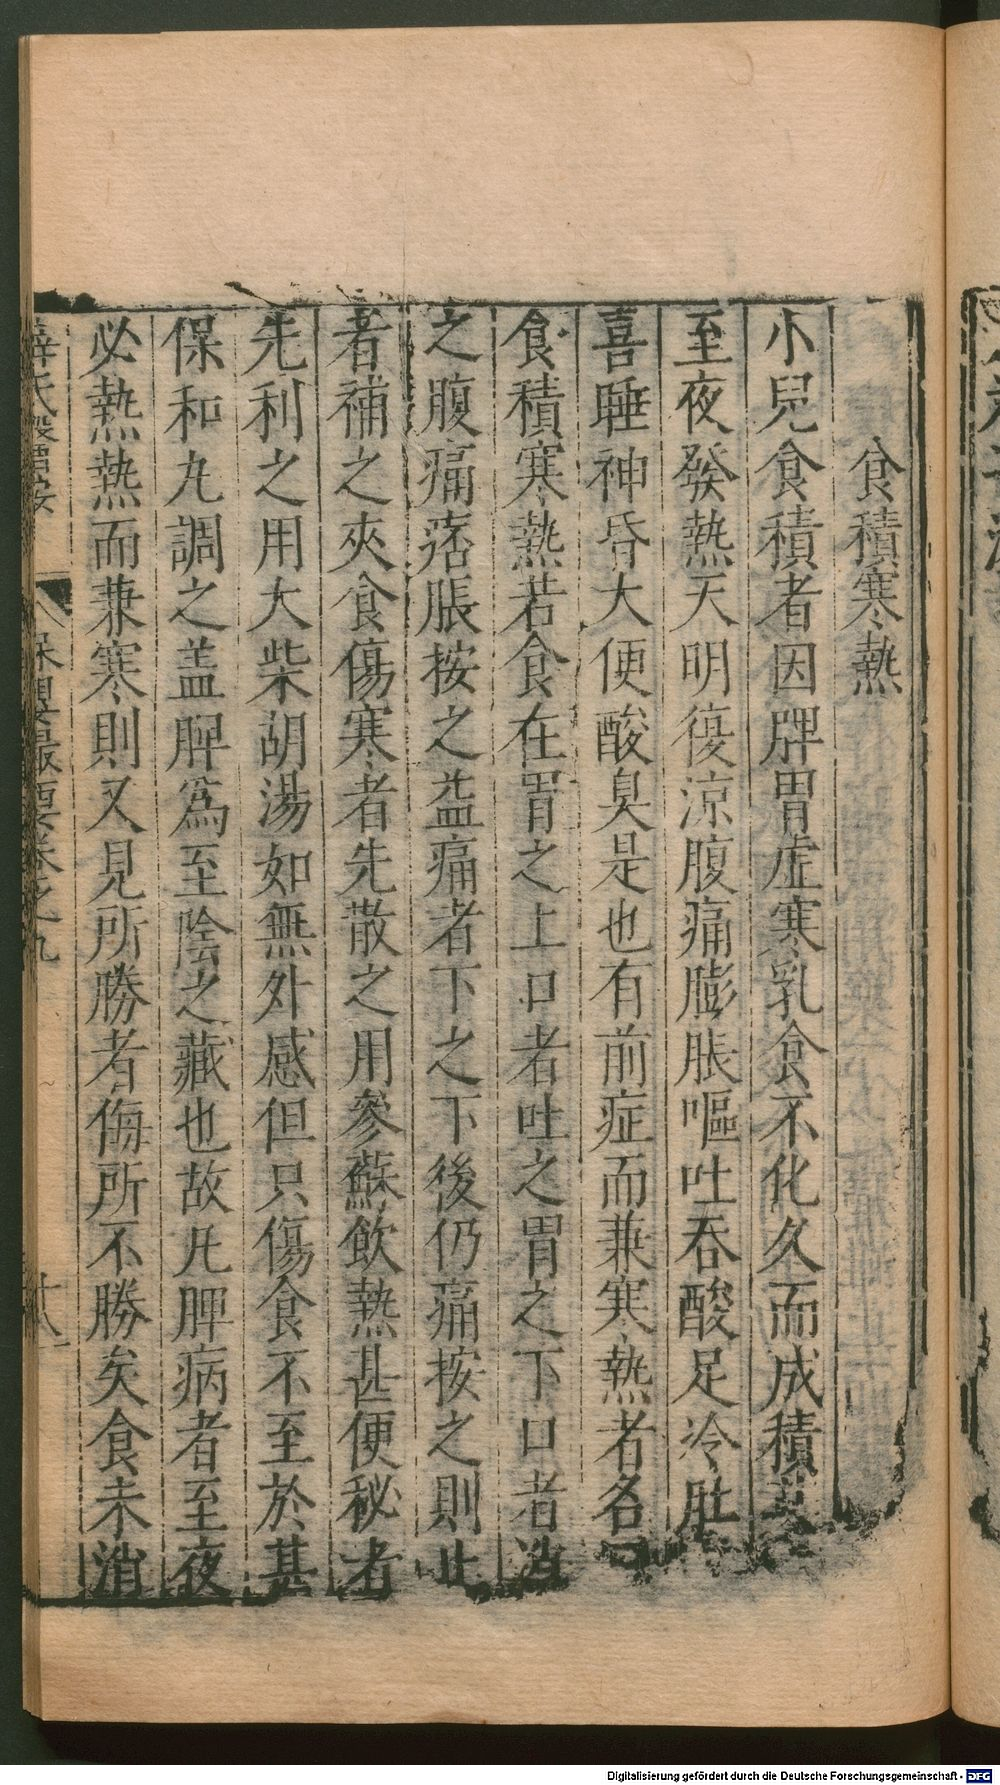 食積寒熱
小兒食積者因脾胃虛寒乳食不化久而成積其
至夜發熱天明復涼腹痛膨脹嘔吐吞酸足冷肚
喜睡神昏大便酸臭是也有前症而兼寒熱者名曰
食積寒熱若食在胃之上口者吐之胃之下口者消
之腹痛痞脹按之益痛者下之下後仍痛按之則止
者補之夾食傷寒者先散之用參蘇飲熱甚便秘者
先利之用大柴胡湯如無外感但只傷食不至於甚
保和丸調之盖脾爲至陰之藏也故凡脾病者至夜
必熱熱而兼寒則又見所勝者侮所不勝矣食未消
保嬰撮要卷之九
Digitalisierung gefördert durch die Deutsche Forschungsgemeinschaft - DFG